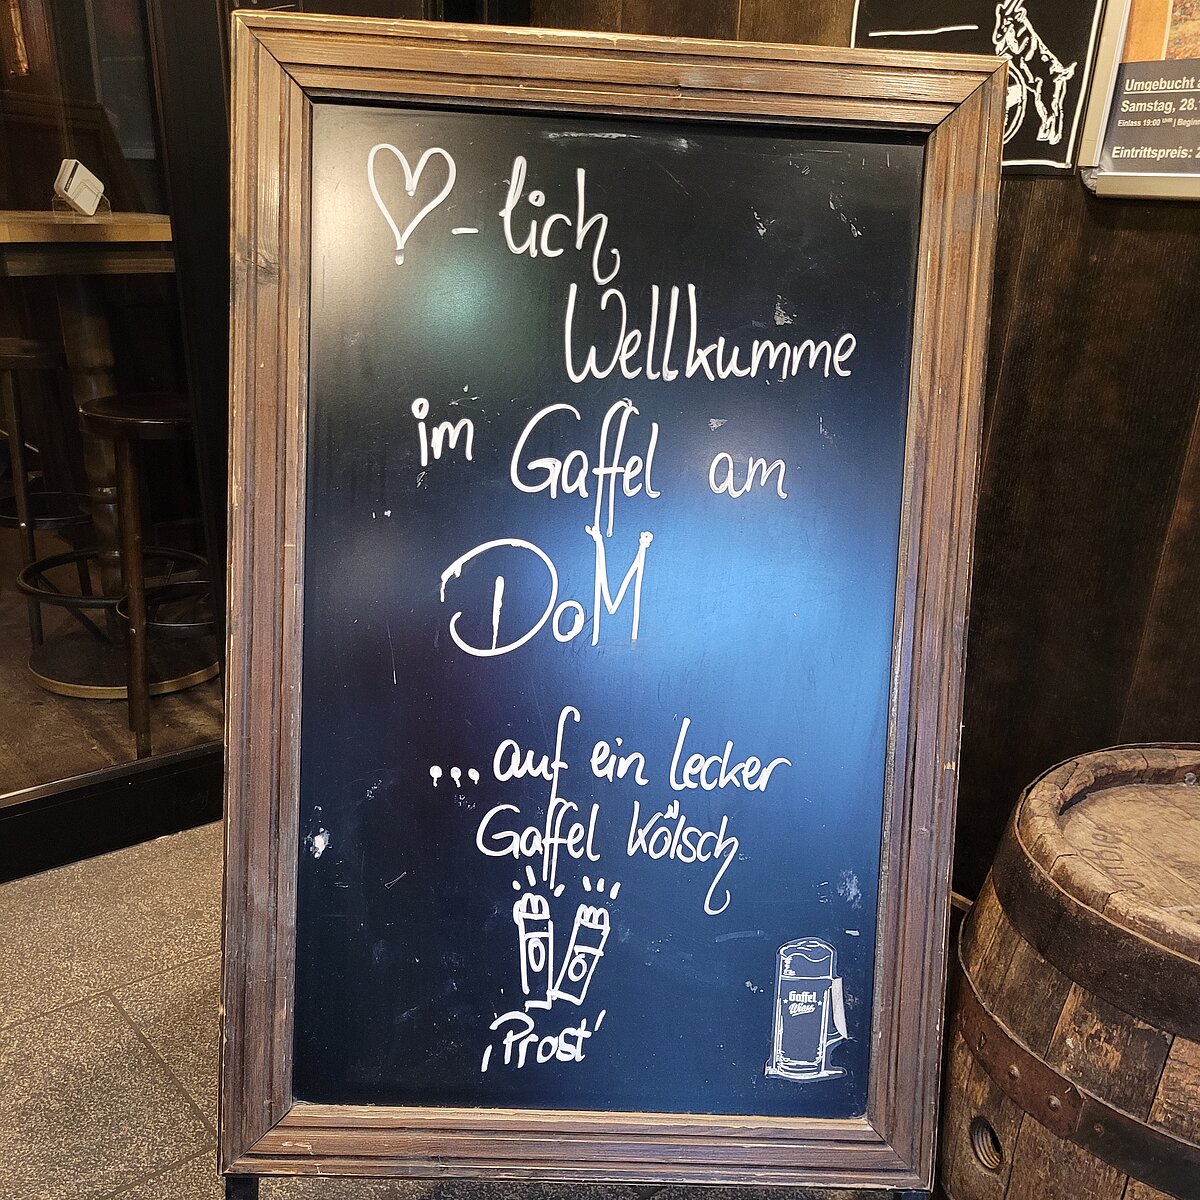 ♡-lich
Wellkumme
im Gaffel am
DoM
...auf ein lecker
Gaffel Kölsch
'Prost'
Gaffel
Wiess
Umgebucht
Samstag, 28.
Einlass 19:00 UHR | Beginn
Eintrittspreis: 2